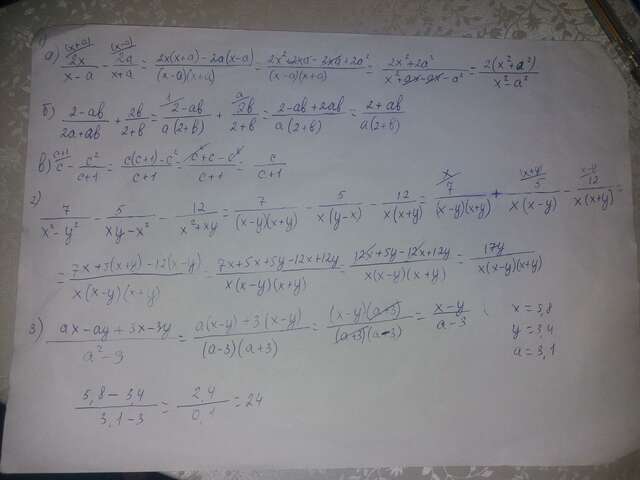 а) (x+a) 2x/(x-a) - (x-a) 2a/(x+a) = (2x(x+a) - 2a(x-a))/((x-a)(x+a)) = (2x² + 2xa - 2xa + 2a²)/((x-a)(x+a)) = (2x² + 2a²)/(x² + ax - ax - a²) = 2(x² + a²)/(x² - a²)
б) (2-ab)/(2a+ab) + 2b/(2+b) = 1 (2-ab)/(a(2+b)) + a 2b/(2+b) = (2-ab+2ab)/(a(2+b)) = (2+ab)/(a(2+b))
в) c+1 c - c²/(c+1) = (c(c+1) - c²)/(c+1) = (c² + c - c²)/(c+1) = c/(c+1)
г) 7/(x²-y²) - 5/(xy-x²) - 12/(x²+xy) = 7/((x-y)(x+y)) - 5/(x(y-x)) - 12/(x(x+y)) = x 7/((x-y)(x+y)) + (x+y) 5/(x(x-y)) - x-y 12/(x(x+y)) =
= (7x + 5(x+y) - 12(x-y))/(x(x-y)(x+y)) = (7x + 5x + 5y - 12x + 12y)/(x(x-y)(x+y)) = (12x + 5y - 12x + 12y)/(x(x-y)(x+y)) = 17y/(x(x-y)(x+y))
3) (ax - ay + 3x - 3y)/(a² - 9) = (a(x-y) + 3(x-y))/((a-3)(a+3)) = ((x-y)(a+3))/((a+3)(a-3)) = (x-y)/(a-3)
x = 5,8
y = 3,4
a = 3,1
(5,8 - 3,4)/(3,1 - 3) = 2,4/0,1 = 24